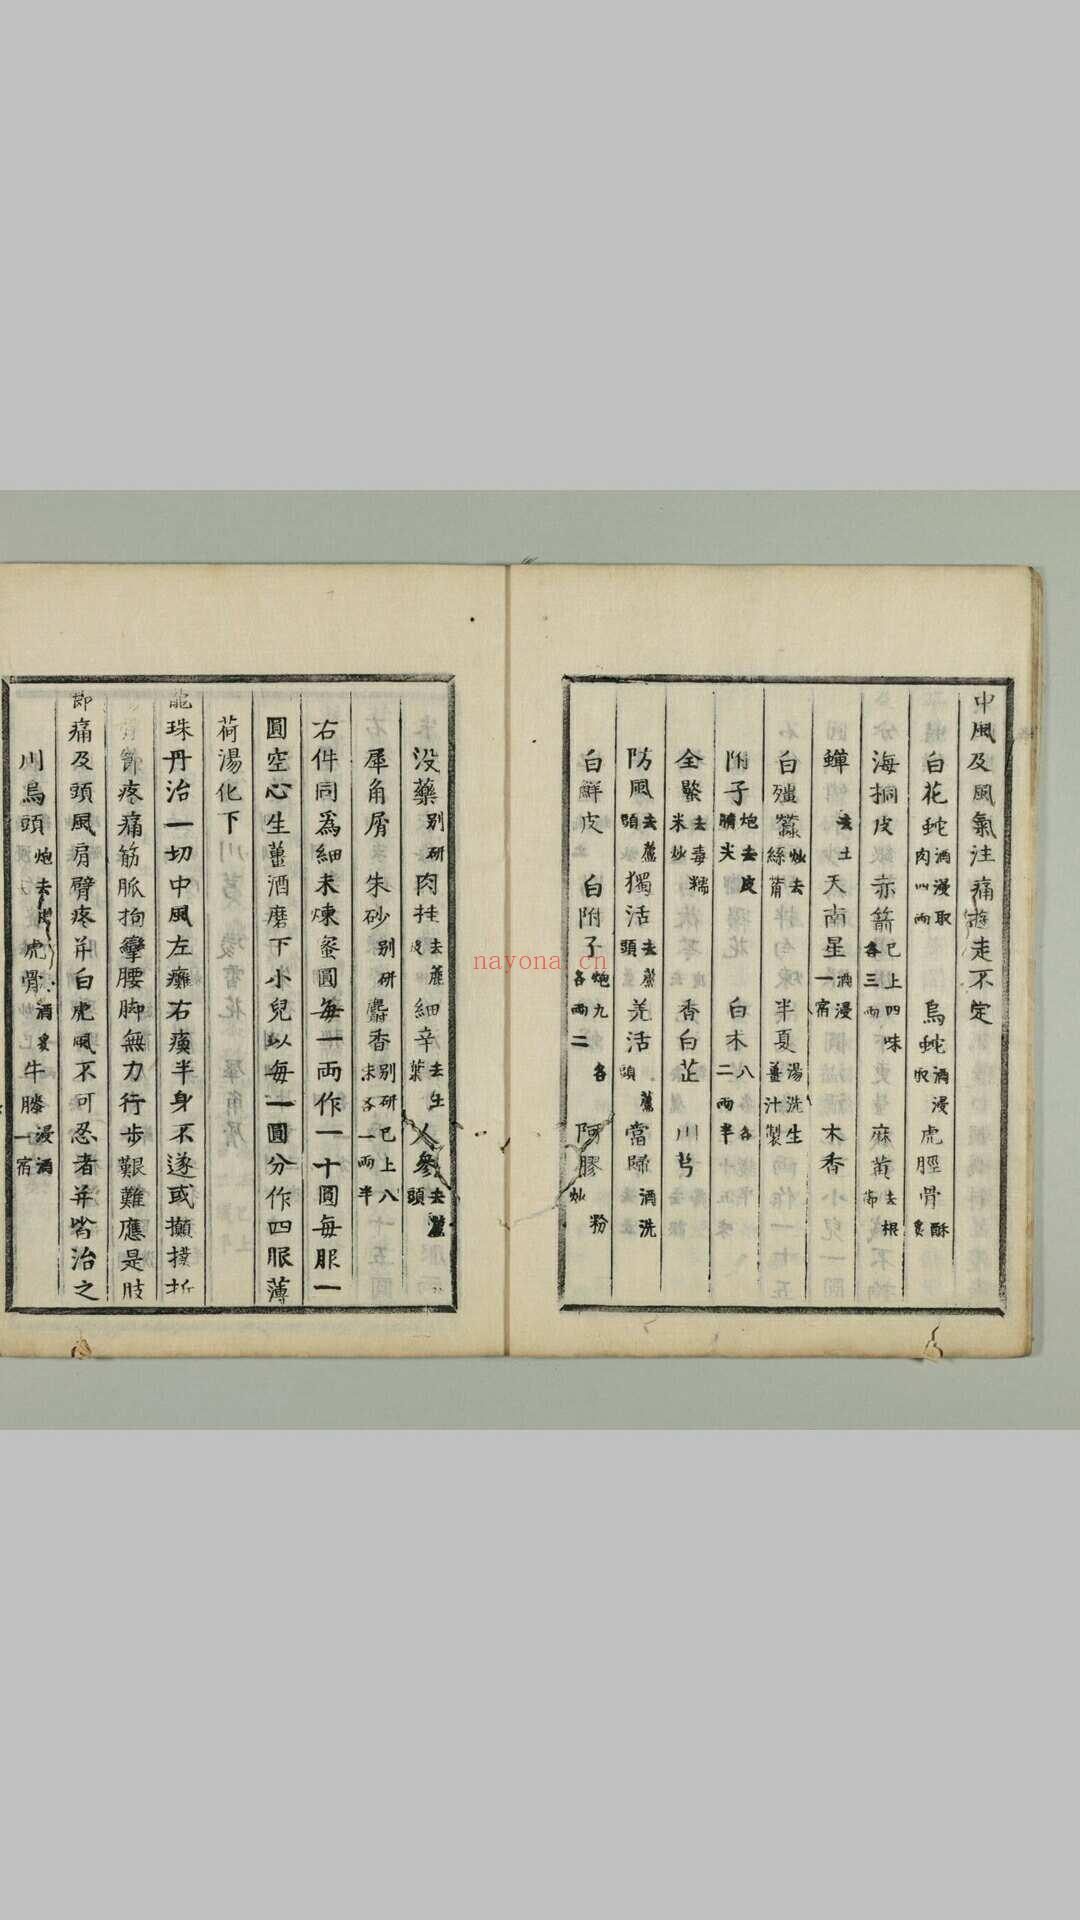 中風及風氣注痛遊走不定
白花蛇酒浸取肉四兩 烏蛇酒浸取 虎脛骨酥炙
海桐皮 赤箭已上四味各三兩 麻黃去根節
蟬去土 天南星酒浸一宿 木香
白殭蠶炒去絲 半夏湯洗生薑汁製
附子炮去皮臍尖 白术八各二兩半
全蝎去毒糯米炒 香白芷 川芎
防風去蘆頭 獨活去蘆頭 羌活蘆頭 當歸酒洗
白鮮皮 白附子炮九各各二兩 阿膠粉炒
没藥別研 肉桂去麄皮 細辛去生葉 人參去蘆頭
犀角屑 朱砂別研 麝香別研已上八味各一兩半
右件同爲細末煉蜜圓每一兩作一十圓每服一
圓空心生薑酒磨下小兒以每一圓分作四服薄
荷湯化下
龍珠丹治一切中風左癱右瘓半身不遂或攧撲折
骨節疼痛筋脈拘攣腰脚無力行步艱難應是肢
節痛及頭風肩臂疼并白虎風不可忍者并皆治之
川烏頭炮去皮 虎骨酒炙 牛膝浸酒一宿
nayona.cn